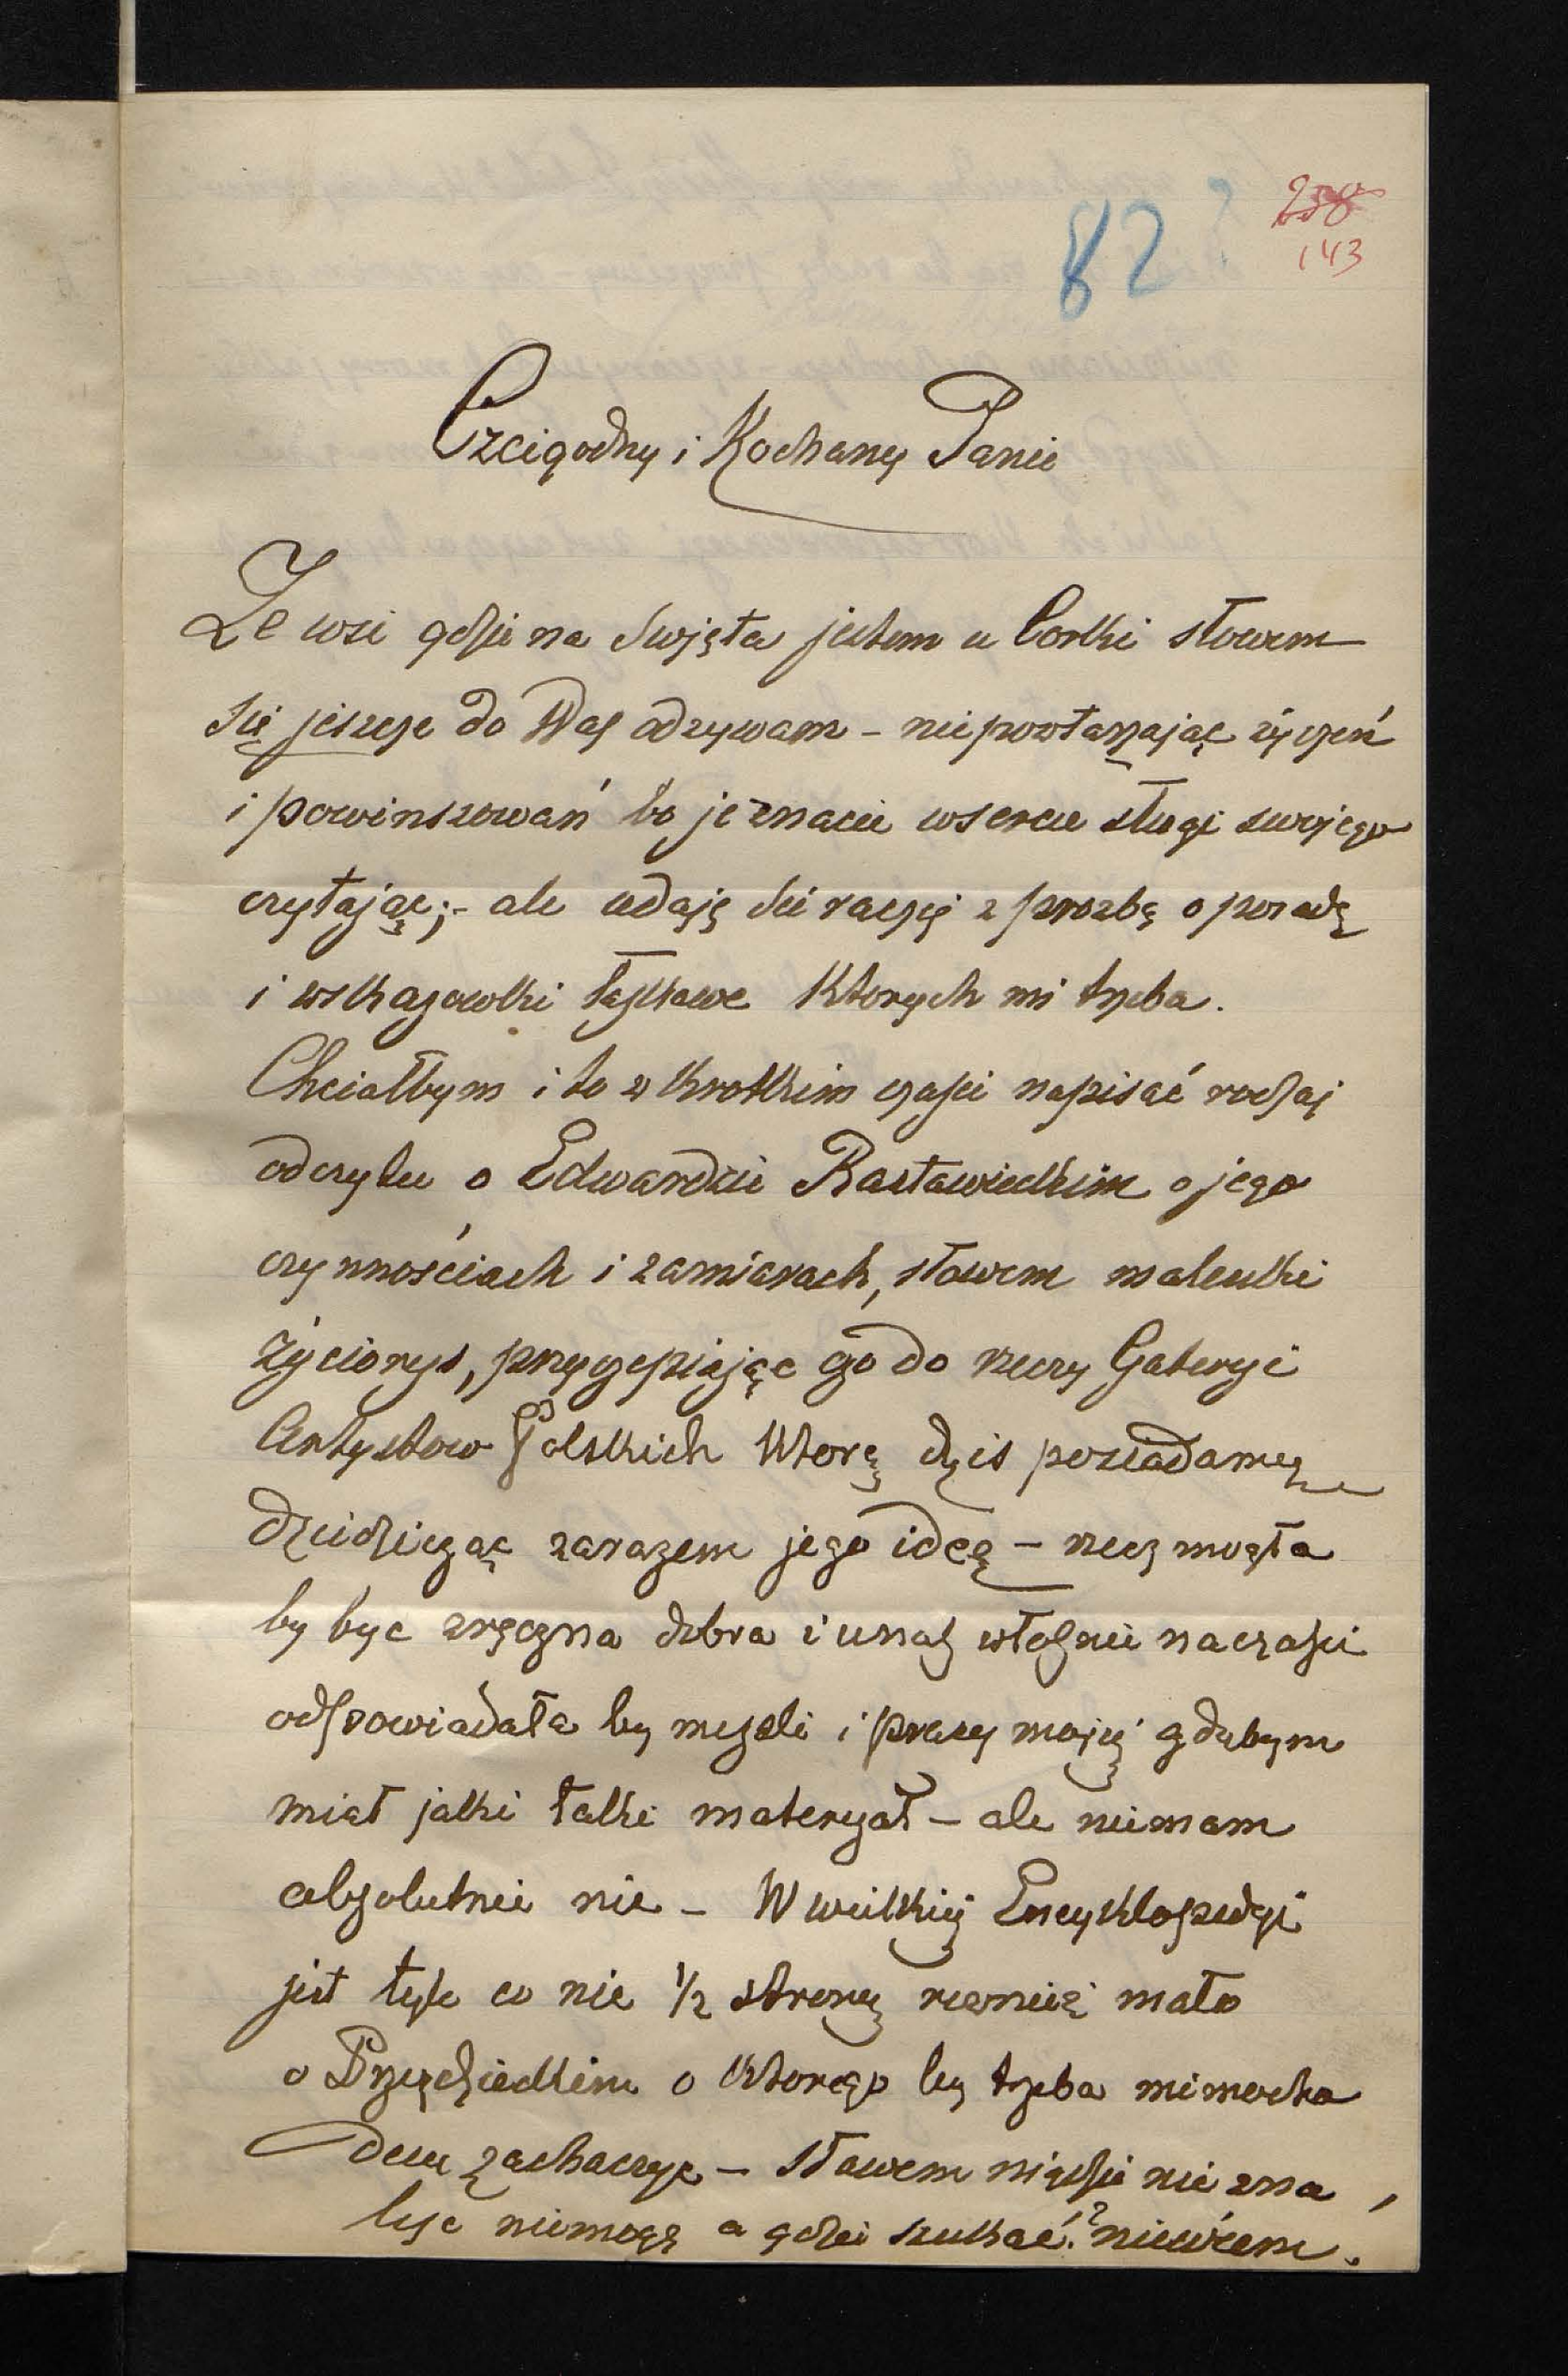 258
143
82
Czcigodny i Kochany Panie
Ze wsi gdzie na Swięta jestem u Corki słowem
się jeszcze do Was odzywam – nie powtarzając życzeń
i powinszowań bo je znacie w sercu sługi swojego
czytając; – ale udaję sie raczej z prozbą o poradę
i wskazowki łaskawe ktorych mi trzeba.
Chciałbym i to w krotkim czasie napisać rodzaj
odczytu o Edwardzie Rastawieckim o jego
czynnościach i zamiarach, słowem malutki
życiorys, przyczepiając go do rzeczy Galeryi
Artystow Polskich ktorą dzis posiadamy
dziedzicząc zarazem jego ideą – rzecz mogła
by byc zręczna dobra i u nas właśnie na czasie
odpowiadała by mysli i pracy mojej gdybym
miał jaki taki materyał – ale niemam
absolutnie nic – W wielkiej Encyklopedyi
jest tyle co nic 1/2 strony rownież mało
o Przezdzieckim o ktorego by trzeba mimocho
dem zachaczyc – słowem nigdzie nic zna
lesc niemogę a gdzie szukać? niewiem.